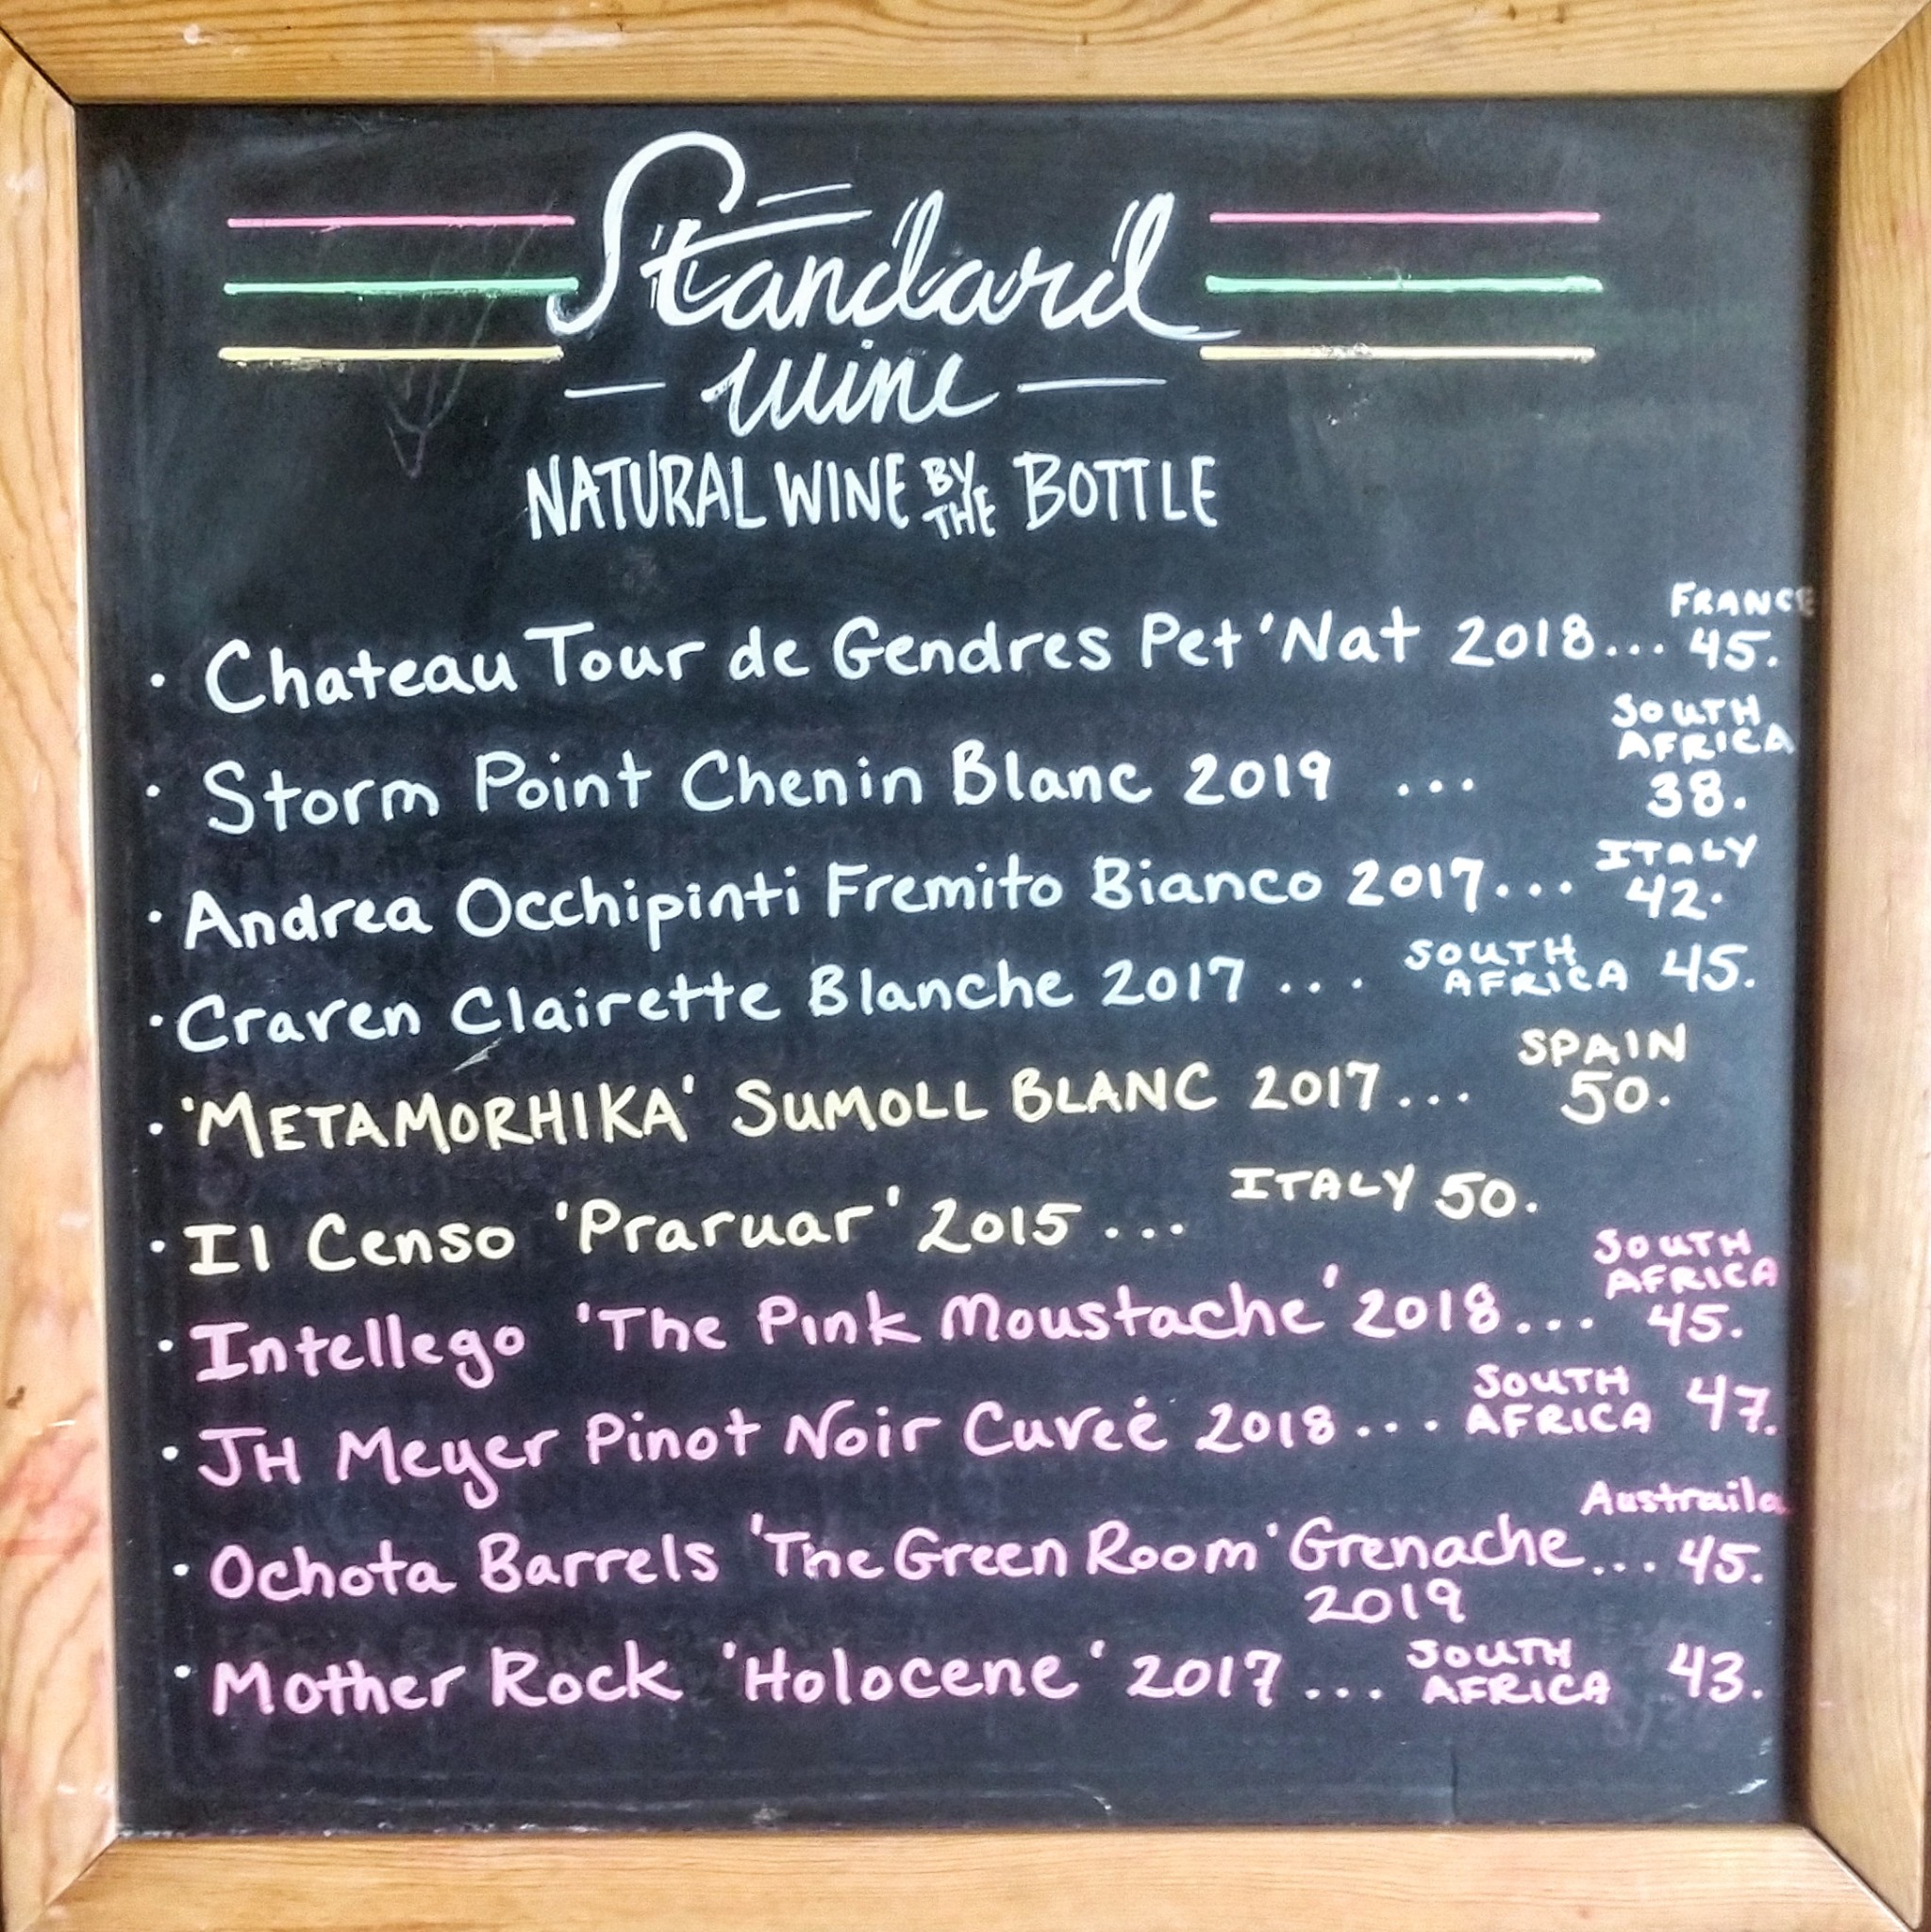 Standard
wine
NATURAL WINE BY THE BOTTLE
· Chateau Tour de Gendres Pet'Nat 2018... FRANCE 45.
· Storm Point Chenin Blanc 2019 ... SOUTH AFRICA 38.
· Andrea Occhipinti Fremito Bianco 2017... ITALY 42.
· Craven Clairette Blanche 2017 ... SOUTH AFRICA 45.
· 'METAMORHIKA' SUMOLL BLANC 2017... SPAIN 50.
· Il Censo 'Praruar' 2015 ... ITALY 50.
· Intellego 'The Pink Moustache' 2018... SOUTH AFRICA 45.
· JH Meyer Pinot Noir Cuveé 2018... SOUTH AFRICA 47.
· Ochota Barrels 'The Green Room' Grenache... Austraila 45.
2019
· Mother Rock 'Holocene' 2017 ... SOUTH AFRICA 43.